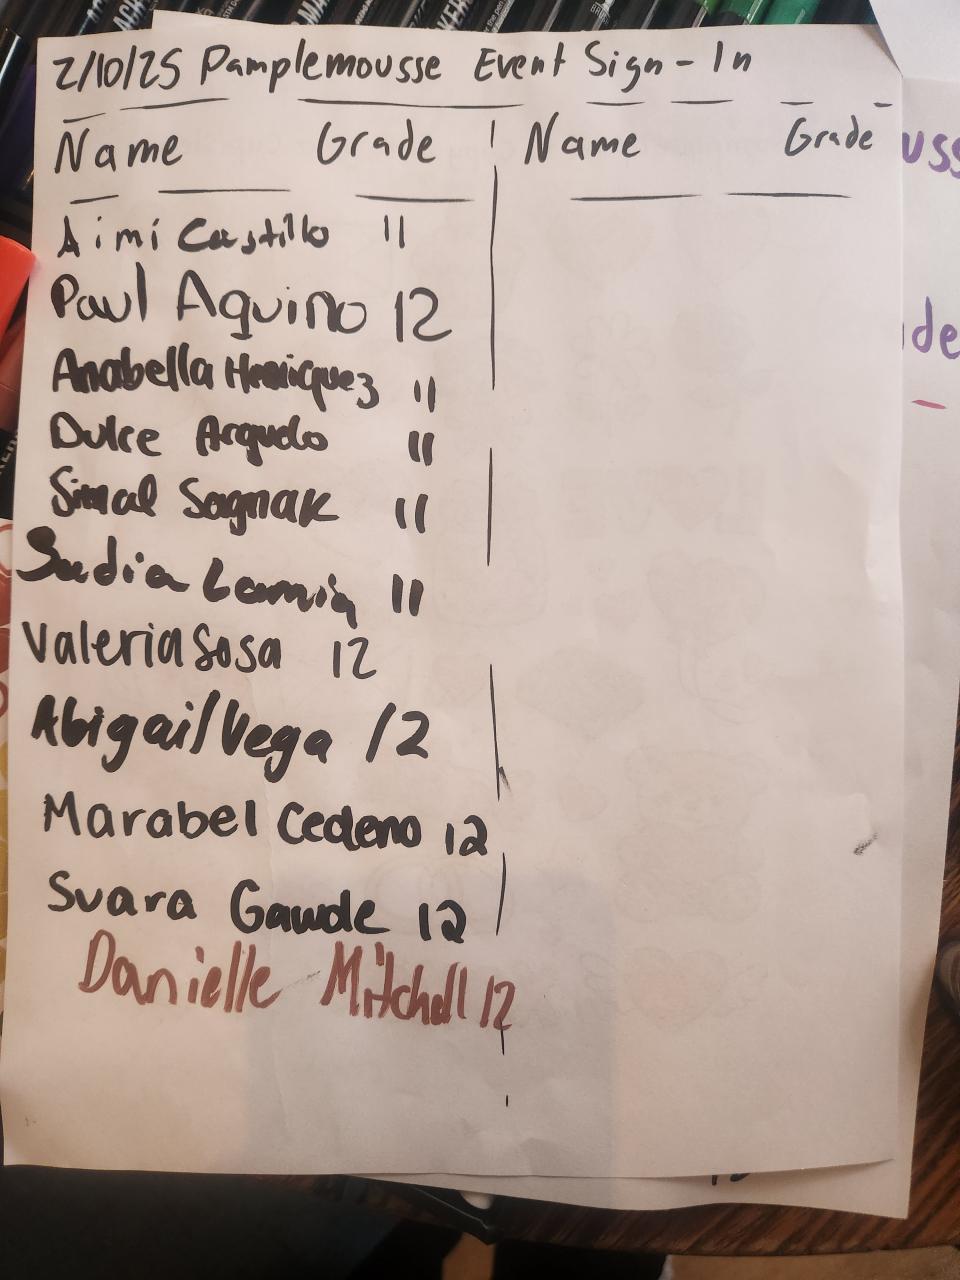 2/10/25 Pamplemousse Event Sign-In
Name Grade Name Grade
Aimi Castillo 11
Paul Aquino 12
Anabella Henriquez 11
Dulce Argudo 11
Simal Sagnak 11
Sadia Lamia 11
Valeria Sosa 12
Abigail Vega 12
Marabel Cedeno 12
Svara Gawde 12
Danielle Mitchell 12